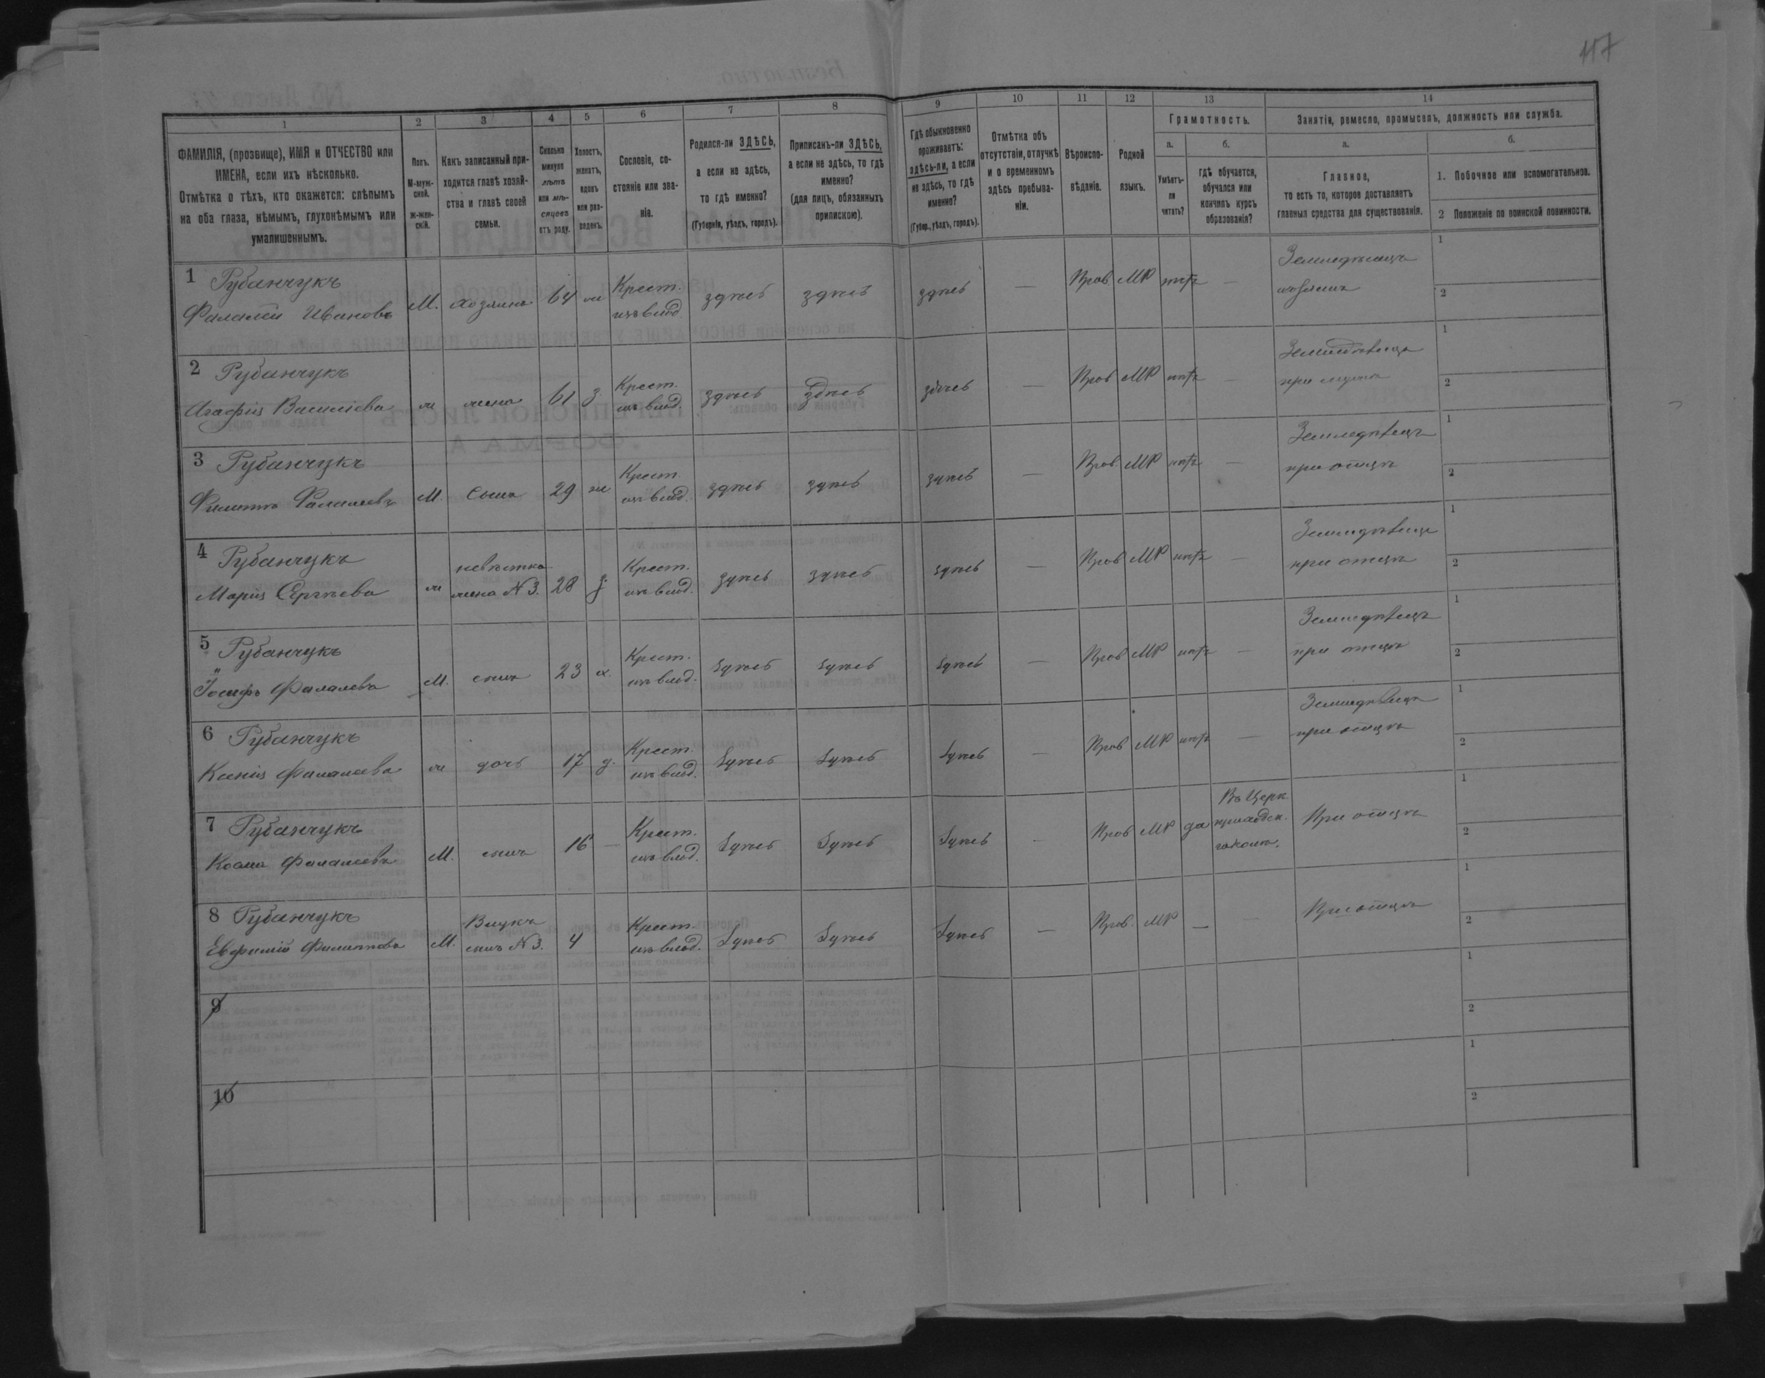 117
1
2
3
4
5
6
7
8
9
10
11
12
13
14
ФАМИЛІЯ, (прозвище), ИМЯ и ОТЧЕСТВО или
ИМЕНА, если ихъ нѣсколько.
Отмѣтка о тѣхъ, кто окажется: слѣпымъ
на оба глаза, нѣмымъ, глухонѣмымъ или
умалишеннымъ.
Полъ.
М-муж-
ской.
Ж-жен-
скій.
Какъ записанный при-
ходится главѣ хозяй-
ства и главѣ своей
семьи.
Сколько
минуло
лѣтъ
или мѣ-
сяцевъ
отъ роду.
Холостъ,
женатъ,
вдовъ
или раз-
веденъ.
Сословіе, со-
стояніе или зва-
ніе.
Родился-ли ЗДѢСЬ,
а если не здѣсь,
то гдѣ именно?
(Губернія, уѣздъ, городъ).
Приписанъ-ли ЗДѢСЬ,
а если не здѣсь, то гдѣ
именно?
(для лицъ, обязанныхъ
припискою).
Гдѣ обыкновенно
проживаетъ:
здѣсь-ли, а если
не здѣсь, то гдѣ
именно?
(Губер., уѣздъ, городъ).
Отмѣтка объ
отсутствіи, отлучкѣ
и о временномъ
здѣсь пребыва-
ніи.
Вѣроиспо-
вѣданіе.
Родной
языкъ.
Грамотность.
а.
Умѣетъ-
ли
читать?
б.
гдѣ обучается,
обучался или
кончилъ курсъ
образованія?
Занятіе, ремесло, промыселъ, должность или служба.
а.
Главное,
то есть то, которое доставляетъ
главныя средства для существованія.
б.
1. Побочное или вспомогательное.
2 Положеніе по воинской повинности.
1 Рубанчукъ
Фалалей Ивановъ М. хозяинъ 64 ж Крест. изъ влад. здѣсь здѣсь здѣсь — Прав МР нѣтъ — Земледѣлецъ хозяинъ 1 2
2 Рубанчукъ
Агафія Васильева ж жена 61 з Крест. изъ влад. здѣсь здѣсь здѣсь — Прав МР нѣтъ — Земледѣлецъ при мужѣ 1 2
3 Рубанчукъ
Филиппъ Фалалеевъ М. сынъ 29 же Крест изъ влад. здѣсь здѣсь здѣсь — Прав МР нѣтъ — Земледѣлецъ при отцѣ 1 2
4 Рубанчукъ
Марія Сергѣева ж невѣстка жена N 3. 28 з Крест. изъ влад. здѣсь здѣсь здѣсь — Прав МР нѣтъ — Земледѣлецъ при отцѣ 1 2
5 Рубанчукъ
Іосифъ Фалалеевъ М. сынъ 23 х Крест. изъ влад. здѣсь здѣсь здѣсь — Прав МР нѣтъ — Земледѣлецъ при отцѣ 1 2
6 Рубанчукъ
Ксенія Фалалеева ж дочь 17 д. Крест. изъ влад. здѣсь здѣсь здѣсь — Прав МР нѣтъ — Земледѣлецъ при отцѣ 1 2
7 Рубанчукъ
Косма Фалалеевъ М. сынъ 16 — Крест. изъ влад. здѣсь здѣсь здѣсь — Прав МР да Въ Церк. приходск. школѣ. При отцѣ 1 2
8 Рубанчукъ
Евфимій Филиповъ М. Внукъ сынъ N 3. 4 Крест. изъ влад. здѣсь здѣсь здѣсь — Прав. МР — — При отцѣ 1 2
9
1
2
10
1
2